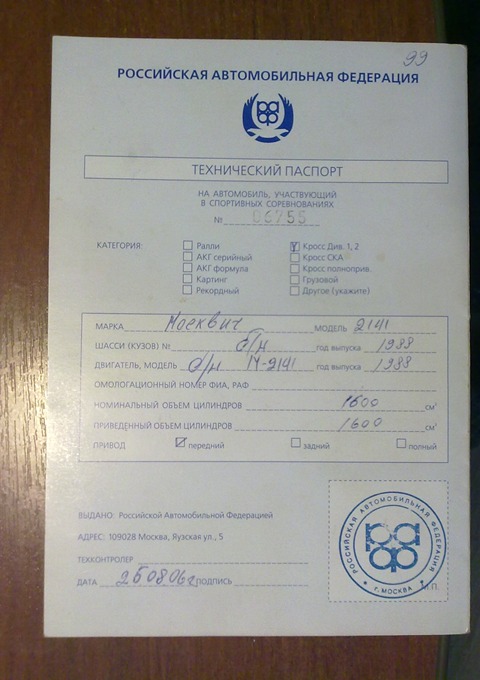 99
РОССИЙСКАЯ АВТОМОБИЛЬНАЯ ФЕДЕРАЦИЯ
раф
ТЕХНИЧЕСКИЙ ПАСПОРТ
НА АВТОМОБИЛЬ, УЧАСТВУЮЩИЙ
В СПОРТИВНЫХ СОРЕВНОВАНИЯХ
№ 06755
КАТЕГОРИЯ: Ралли Кросс Див. 1, 2
АКГ серийный Кросс СКА
АКГ формула Кросс полноприв.
Картинг Грузовой
Рекордный Другое (укажите)
МАРКА Москвич МОДЕЛЬ 2141
ШАССИ (КУЗОВ) № б/н год выпуска 1988
ДВИГАТЕЛЬ, МОДЕЛЬ б/н М-2141 год выпуска 1988
ОМОЛОГАЦИОННЫЙ НОМЕР ФИА, РАФ
НОМИНАЛЬНЫЙ ОБЪЕМ ЦИЛИНДРОВ 1600 см³
ПРИВЕДЕННЫЙ ОБЪЕМ ЦИЛИНДРОВ 1600 см³
ПРИВОД передний задний полный
ВЫДАНО: Российской Автомобильной Федерацией
АДРЕС: 109028 Москва, Яузская ул., 5
ТЕХКОНТРОЛЕР
ДАТА 25.08.06г. ПОДПИСЬ
РОССИЙСКАЯ АВТОМОБИЛЬНАЯ ФЕДЕРАЦИЯ
раф
Г. МОСКВА
М.П.